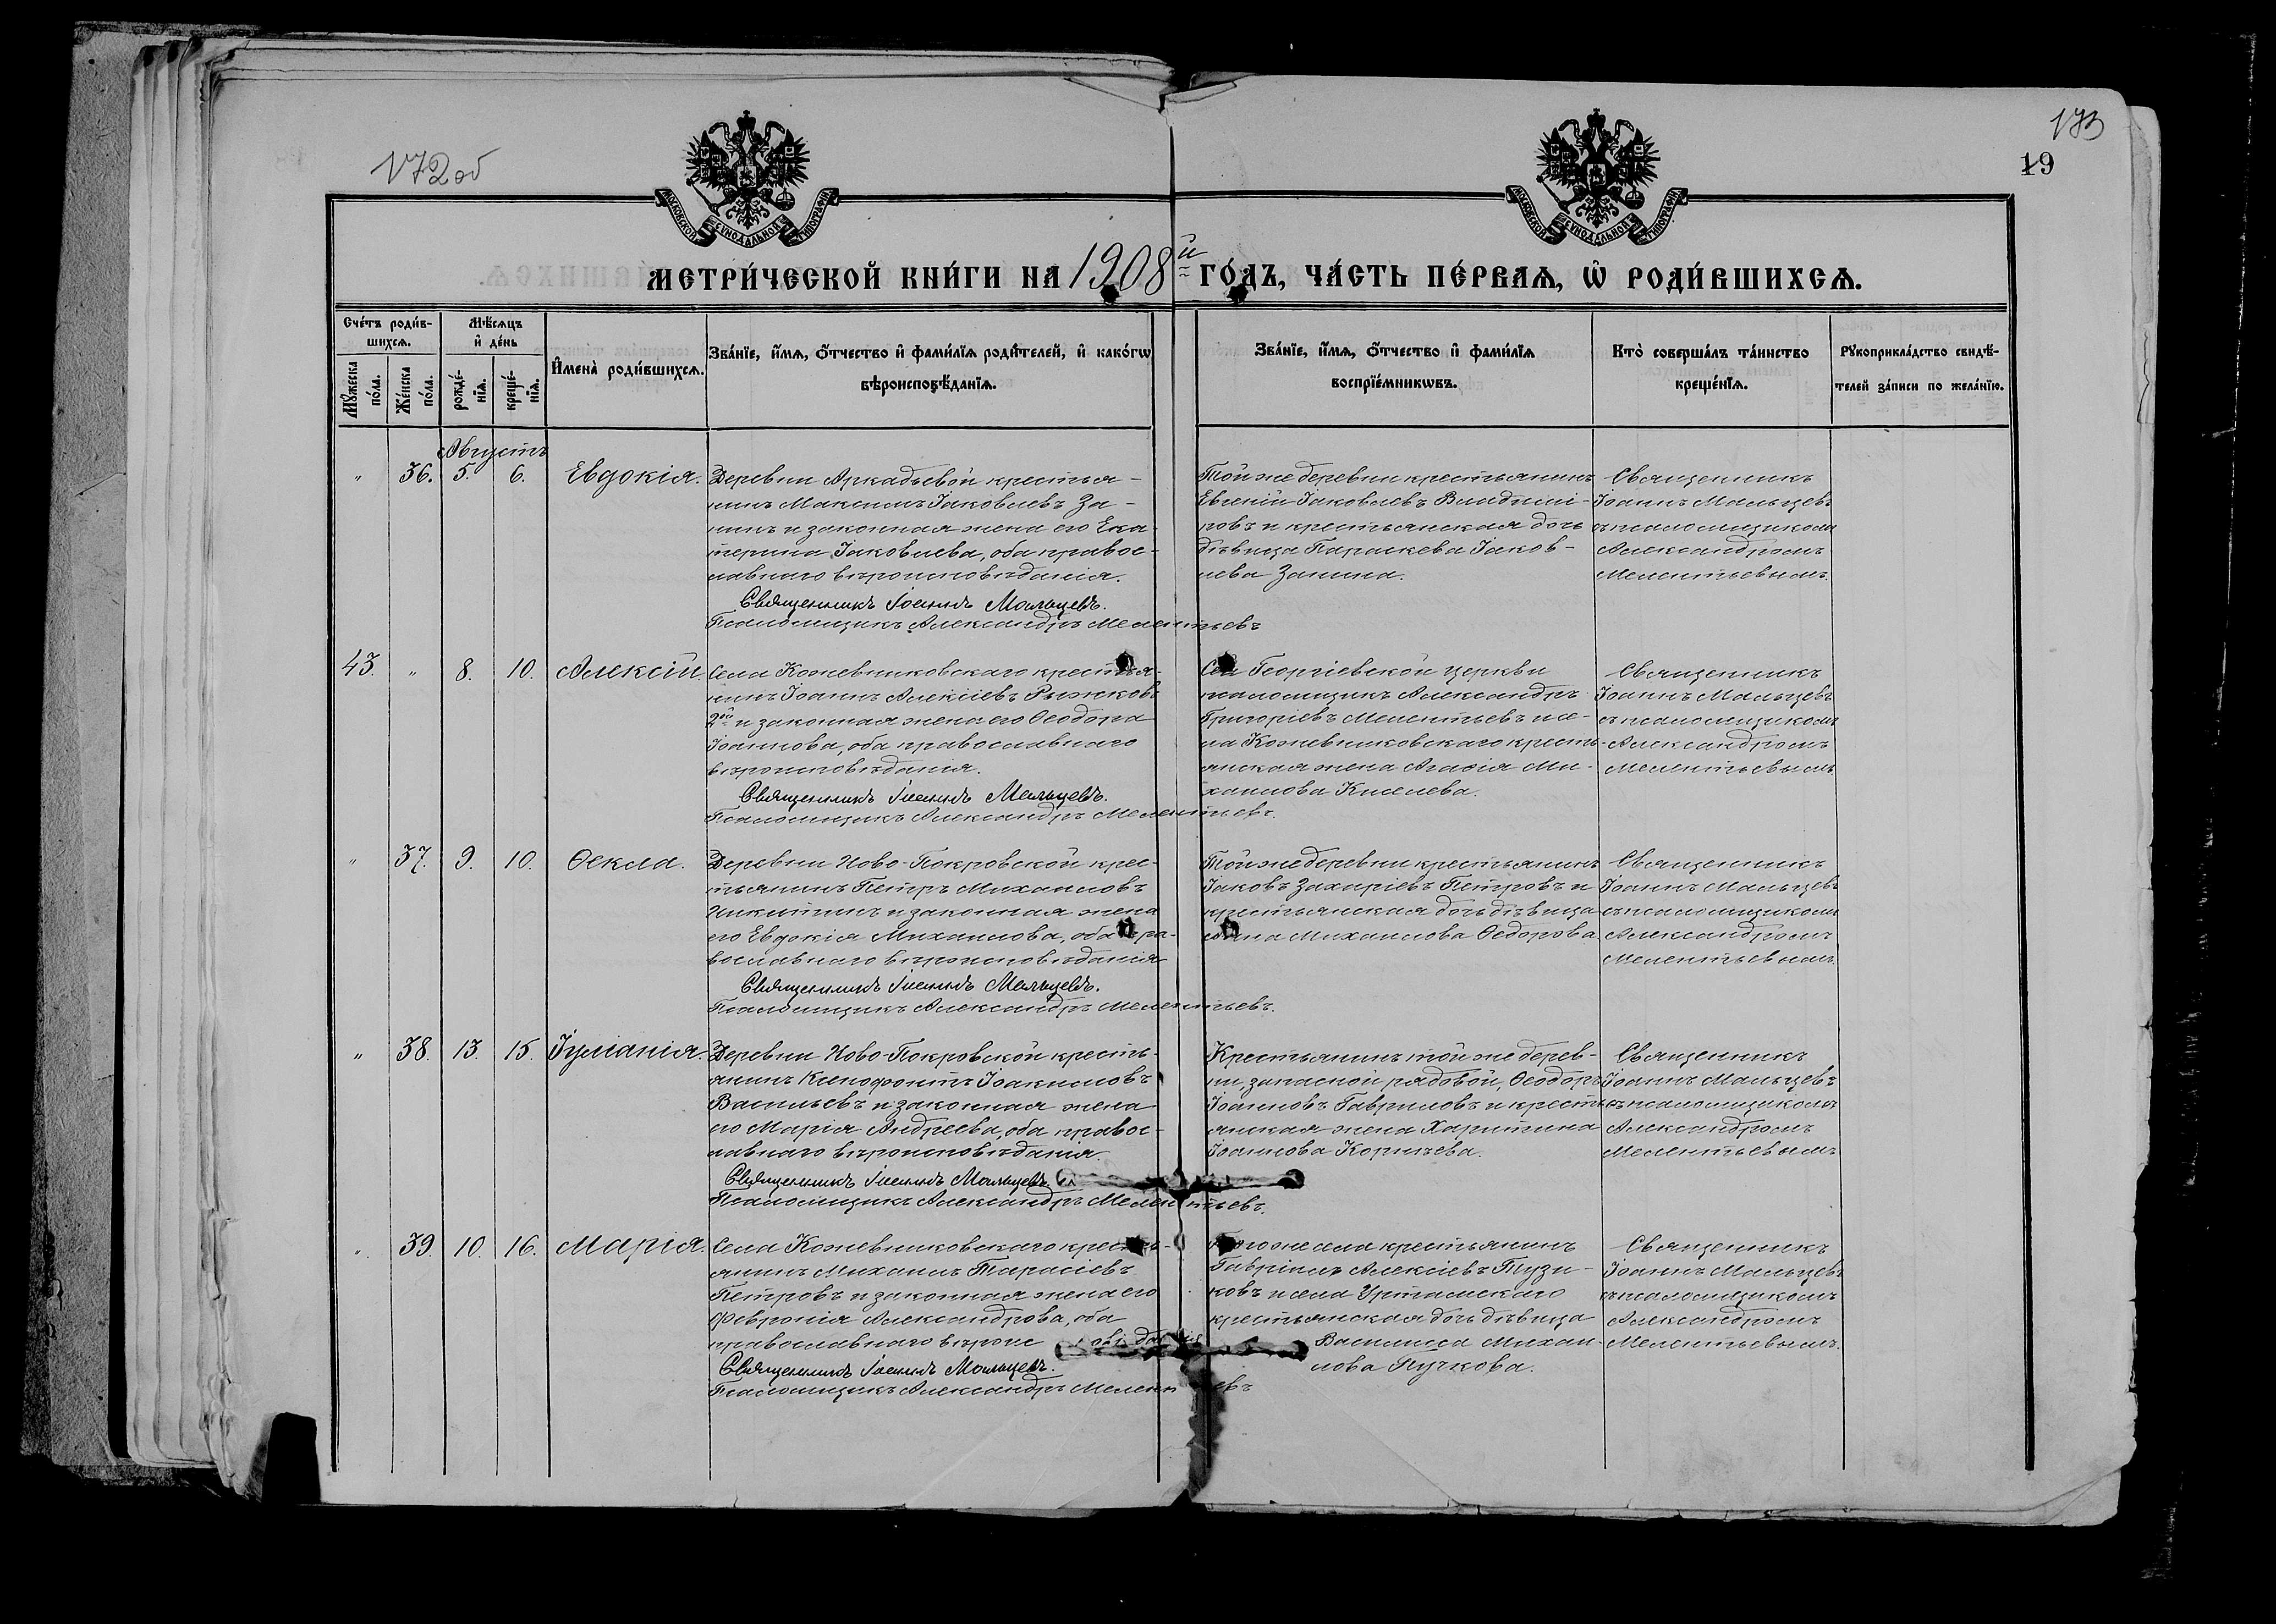 172об
173
19
МОСКОВСКОЙ СУНОДАЛЬНОЙ ТИПОГРАФІИ
МОСКОВСКОЙ СУНОДАЛЬНОЙ ТИПОГРАФІИ
МЕТРИ́ЧЕСКОЙ КНИ́ГИ НА 1908й ГО́ДЪ, ЧА́СТЬ ПЕ́РВАѦ, Ѡ҆ РОДИ́ВШИХСѦ.
Сче́тъ роди́в-
шихсѧ.
Мѣ́сѧцъ
и҆ де́нь
И҆мена̀ роди́вшихсѧ.
Зва́нїе, и҆́мѧ, о҆́тчество и҆ фами́лїѧ роди́телей, и҆ како́гѡ
вѣроисповѣ́данїѧ.
Зва́нїе, и҆́мѧ, о҆́тчество и҆ фами́лїѧ
воспрїе́мникѡвъ.
Кто̀ соверша́лъ та́инство
креще́нїѧ.
Рꙋкоприкла́дство свидѣ́-
телей за́писи по жела́нїю.
Мꙋ́жеска
по́ла.
Же́нска
по́ла.
рожде́-
нїѧ.
креще́-
нїѧ.
Августъ
" 36. 5. 6. Евдокія.
Деревни Аркадьевой крестья-
нинъ Максимъ Іаковлевъ За-
нинъ и законная жена его Ека-
терина Іаковлева, оба правос-
лавнаго вѣроисповѣданія.
Священникъ Іоаннъ Мальцевъ.
Псаломщикъ Александръ Мелентьевъ
Той же деревни крестьянинъ
Евгеній Іаковлевъ Владимі-
ровъ и крестьянская дочь
дѣвица Параскева Іаков-
лева Занина.
Священникъ
Іоаннъ Мальцевъ
съ псаломщикомъ
Александромъ
Мелентьевымъ.
43. " 8. 10. Алексій.
Села Кожевниковскаго крестья-
нинъ Іоаннъ Алексіевъ Рыжковъ
2й и законная жена его Ѳеодора
Іоаннова, оба православнаго
вѣроисповѣданія.
Священникъ Іоаннъ Мальцевъ.
Псаломщикъ Александръ Мелентьевъ.
Сей Георгіевской церкви
псаломщикъ Александръ
Григоріевъ Мелентьевъ и се-
ла Кожевниковскаго кресть-
янская жена Агафія Ми-
хаилова Киселева.
Священникъ
Іоаннъ Мальцевъ
съ псаломщикомъ
Александромъ
Мелентьевымъ
" 37. 9. 10. Ѳекла.
Деревни Ново-Покровской крес-
тьянинъ Петръ Михаиловъ
Никитинъ и законная жена
его Евдокія Михаилова, оба пра-
вославнаго вѣроисповѣданія
Священникъ Іоаннъ Мальцевъ.
Псаломщикъ Александръ Мелентьевъ.
Той же деревни крестьянинъ
Іаковъ Захаріевъ Петровъ и
крестьянская дочь дѣвица
Анна Михаилова Ѳедорова.
Священникъ
Іоаннъ Мальцевъ
съ псаломщикомъ
Александромъ
Мелентьевымъ.
" 38. 13. 15. Іуліанія.
Деревни Ново-Покровской кресть-
янинъ Ксенофонтъ Іоакимовъ
Васильевъ и законная жена
его Марія Андреева, оба правос-
лавнаго вѣроисповѣданія.
Священникъ Іоаннъ Мальцевъ.
Псаломщикъ Александръ Мелентьевъ.
Крестьянинъ той же дерев-
ни, запасной рядовой, Ѳеодоръ
Іоанновъ Гавриловъ и кресть-
янская жена Харитина
Іоаннова Корнѣева.
Священникъ
Іоаннъ Мальцевъ
съ псаломщикомъ
Александромъ
Мелентьевымъ
" 39. 10. 16. Марія.
Села Кожевниковскаго кресть-
янинъ Михаилъ Тарасіевъ
Петровъ и законная жена его
Февронія Александрова, оба
православнаго вѣроисповѣданія
Священникъ Іоаннъ Мальцевъ.
Псаломщикъ Александръ Мелентьевъ
Того же села крестьянинъ
Гавріилъ Алексіевъ Тузи-
ковъ и села Уртамскаго
крестьянская дочь дѣвица
Василиса Михаи-
лова Пучкова.
Священникъ
Іоаннъ Мальцевъ
съ псаломщикомъ
Александромъ
Мелентьевымъ.